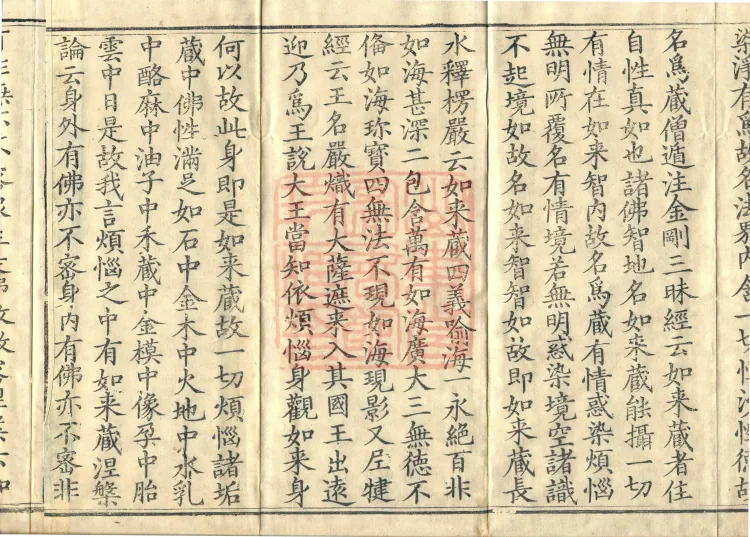 染淨有為故名法界內含一切
名為藏僧遁注金剛三昧經云如来藏者住
自性真如也諸佛智地名如来藏能攝一切
有情在如来智內故名為藏有情惑染煩惱
無明所覆名有情境若無明惑染境空諸識
不起境如故名如来智智如故即如来藏長
水釋楞嚴云如来藏四義喻海一永絕百非
如海甚深二包含萬有如海廣大三無德不
俻如海珎寶四無法不現如海現影又尼犍
經云王名嚴熾有大薩遮来入其國王出遠
迎乃為王說大王當知依煩惱身觀如来身
何以故此身即是如来藏故一切煩惱諸垢
藏中佛性滿足如石中金木中火地中水乳
中酪麻中油子中禾藏中金模中像孕中胎
雲中日是故我言煩惱之中有如来藏涅槃
論云身外有佛亦不審身內有佛亦不審非